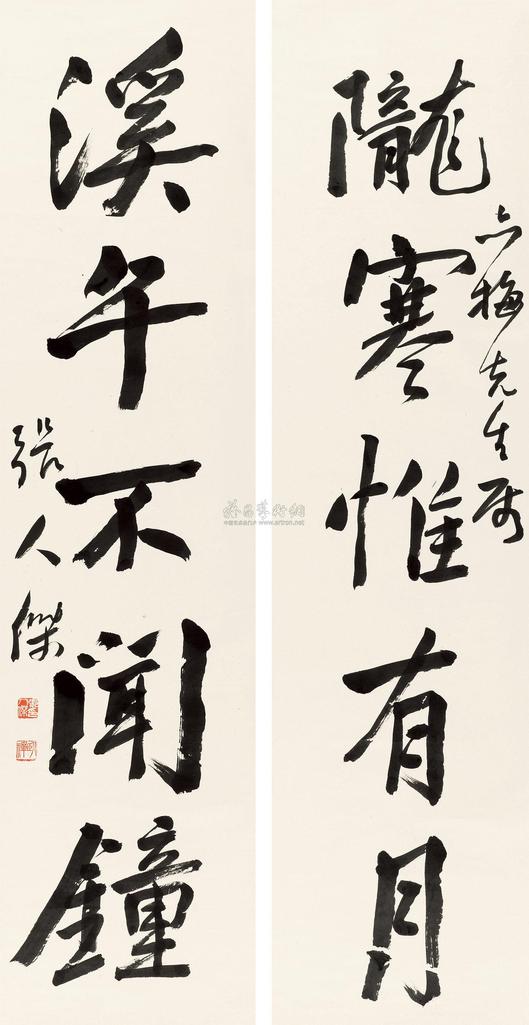 六梅先生属
隴寒惟有月
溪午不聞鐘
張人傑
雅昌藝術網
www.artron.net